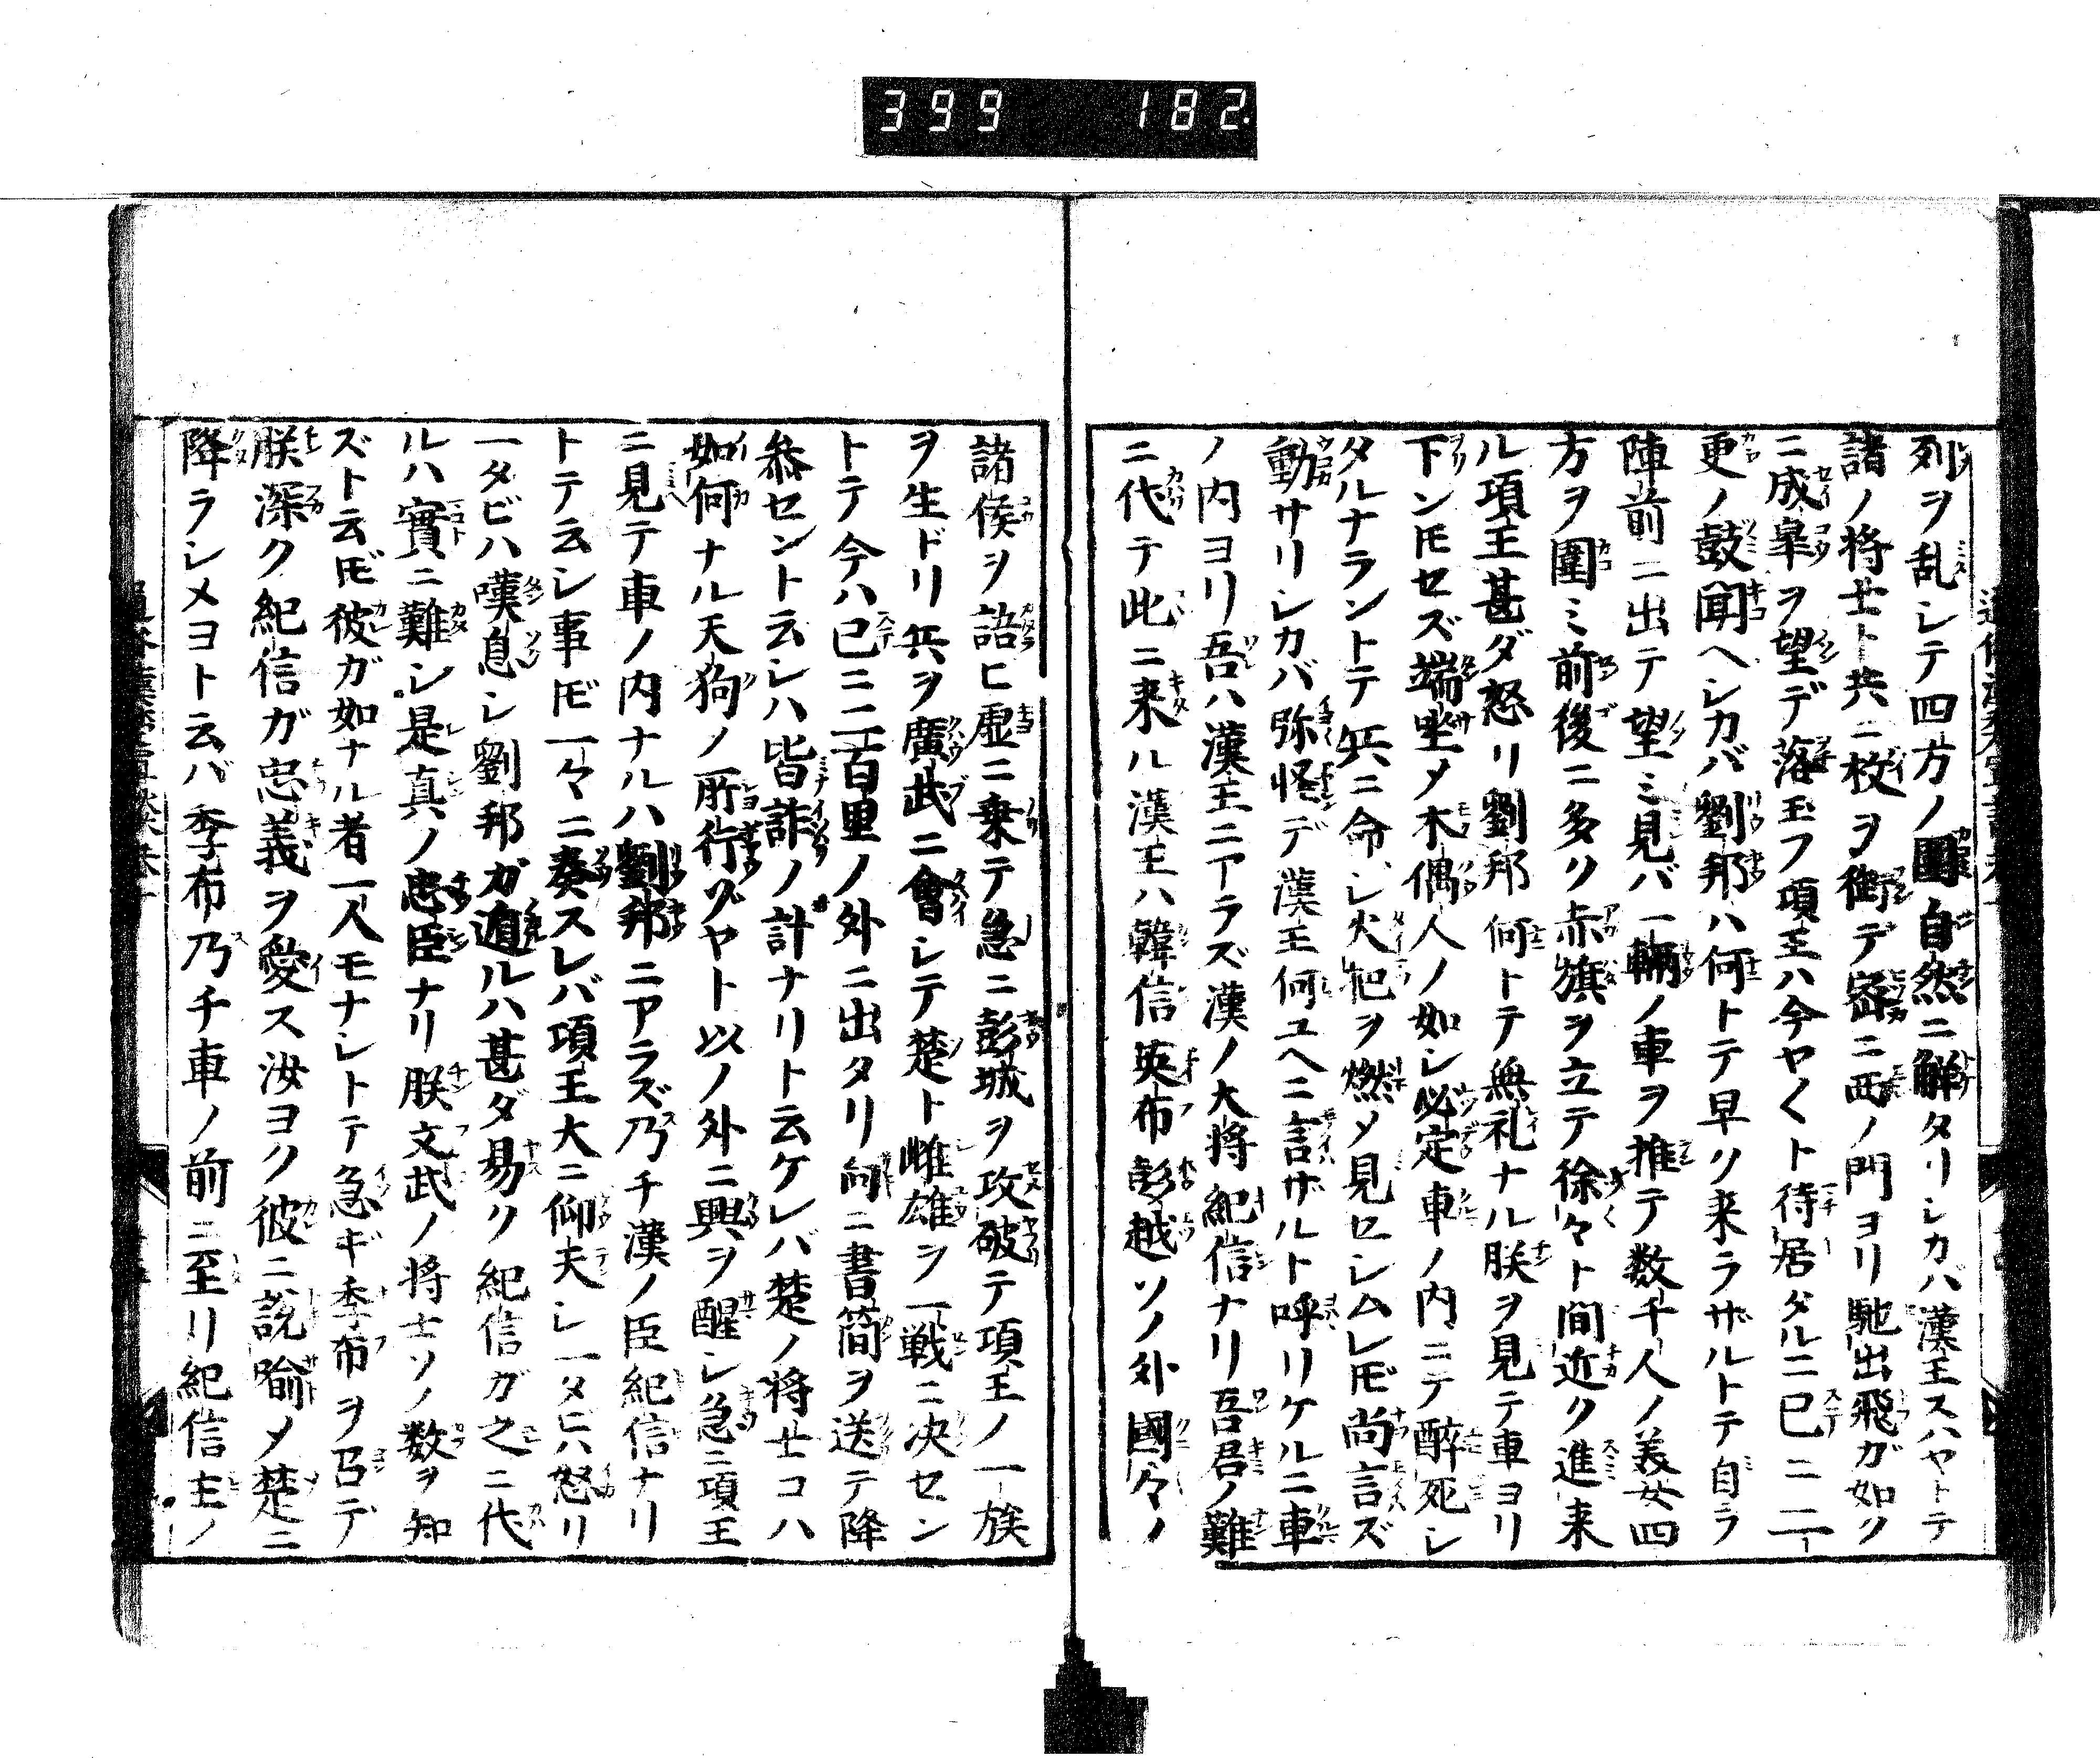 399 182.
列ヲ乱シテ四方ノ圍自然ニ解タリシカバ漢王スハヤトテ
諸ノ将士ト共ニ枚ヲ銜デ密ニ西ノ門ヨリ馳出飛ガ如ク
ニ成皐ヲ望デ落玉フ項王ハ今ヤ〱ト待居タルニ已ニ二
更ノ鼓聞ヘシカバ劉邦ハ何トテ早ク来ラザルトテ自ラ
陣前ニ出テ望ミ見バ一輛ノ車ヲ推テ数千人ノ美女四
方ヲ圍ミ前後ニ多ク赤旗ヲ立テ徐々ト間近ク進来
ル項王甚ダ怒リ劉邦何トテ無礼ナル朕ヲ見テ車ヨリ
下ン𪜈セズ端坐メ木偶人ノ如シ必定車ノ内ニテ醉死シ
タルナラントテ兵ニ命ジ火把ヲ燃メ見セシムレ𪜈尚言ズ
動サリシカバ弥怪デ漢王何ユヘニ言ザルト呼リケルニ車
ノ内ヨリ吾ハ漢王ニアラズ漢ノ大将紀信ナリ吾君ノ難
ニ代テ此ニ来ル漢王ハ韓信英布彭越ソノ外國々ノ
諸侯ヲ語ヒ虚ニ乗テ急ニ彭城ヲ攻破テ項王ノ一族
ヲ生ドリ兵ヲ廣武ニ會シテ楚ト雌雄ヲ一戦ニ决セン
トテ今ハ已ニ二百里ノ外ニ出タリ向ニ書簡ヲ送テ降
叅セント云シハ皆詐ノ計ナリト云ケレバ楚ノ将士コハ
如何ナル天狗ノ所行ゾヤト以ノ外ニ興ヲ醒シ急ニ項王
ニ見テ車ノ内ナルハ劉邦ニアラズ乃チ漢ノ臣紀信ナリ
トテ云シ事𪜈一々ニ奏スレバ項王大ニ仰天シ一タビハ怒リ
一タビハ嘆息シ劉邦ガ遁ルハ甚ダ易ク紀信ガ之ニ代
ルハ實ニ難シ是真ノ忠臣ナリ朕文武ノ将士ソノ数ヲ知
ズト云𪜈彼ガ如ナル者一人モナシトテ急ギ季布ヲ召デ
朕深ク紀信ガ忠義ヲ愛ス汝ヨク彼ニ説喻メ楚ニ
降ラシメヨト云バ季布乃チ車ノ前ニ至リ紀信主ノ